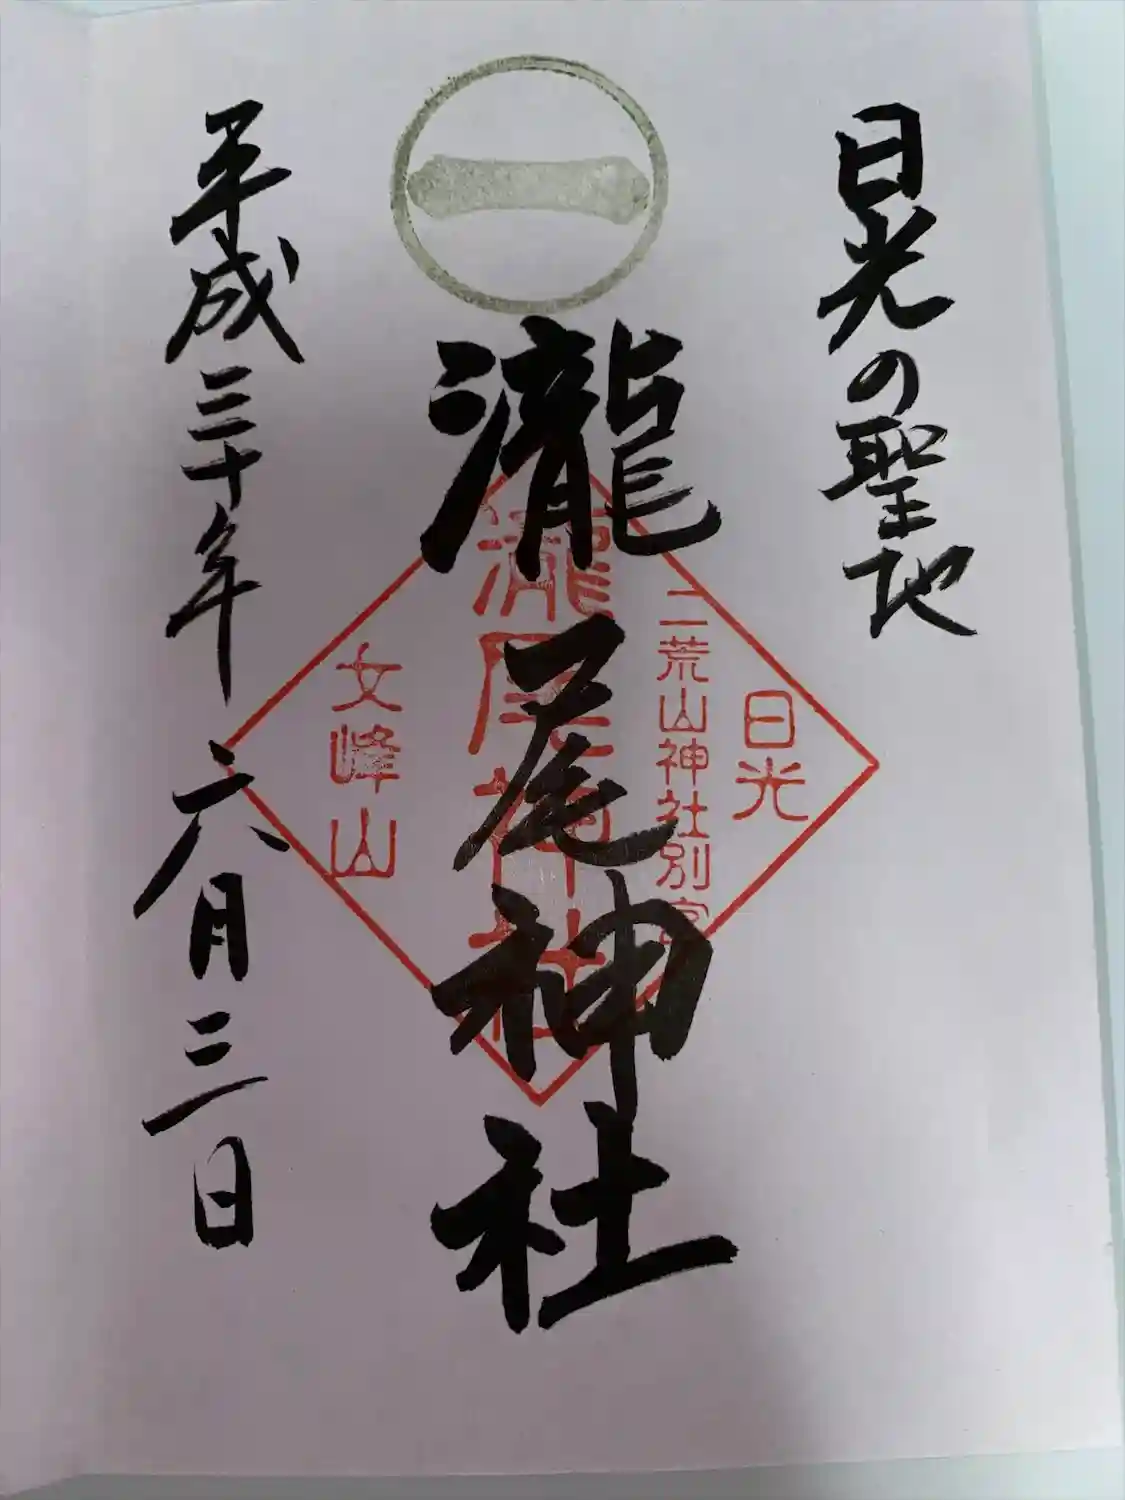 日光の聖地
一
瀧尾神社
日光
二荒山神社別宮
瀧尾神社
女峰山
平成三十年六月三日